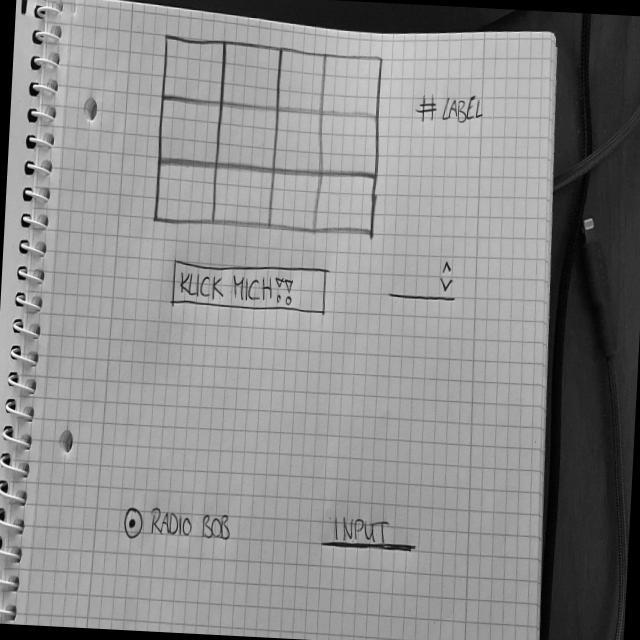 # LABEL
KLICK MICH!!
RADIO BOB
INPUT